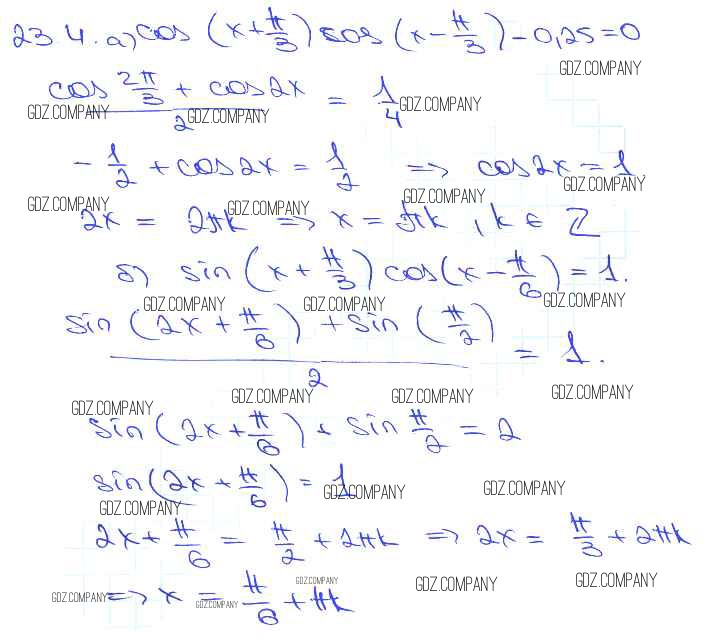 23.4. а) cos (x + π/3) cos (x − π/3) − 0,25 = 0
GDZ.COMPANY
(cos 2π/3 + cos 2x)/2 = 1/4
GDZ.COMPANY GDZ.COMPANY GDZ.COMPANY
− 1/2 + cos 2x = 1/2 => cos 2x = 1,
GDZ.COMPANY GDZ.COMPANY GDZ.COMPANY GDZ.COMPANY
2x = 2πk => x = πk, k ∈ ℤ
б) sin (x + π/3) cos (x − π/6) = 1.
GDZ.COMPANY GDZ.COMPANY GDZ.COMPANY
(sin (2x + π/6) + sin (π/2))/2 = 1.
GDZ.COMPANY GDZ.COMPANY GDZ.COMPANY GDZ.COMPANY
sin (2x + π/6) + sin π/2 = 2
sin (2x + π/6) = 1
GDZ.COMPANY GDZ.COMPANY GDZ.COMPANY
2x + π/6 = π/2 + 2πk => 2x = π/3 + 2πk
GDZ.COMPANY GDZ.COMPANY GDZ.COMPANY GDZ.COMPANY GDZ.COMPANY
=> x = π/6 + πk